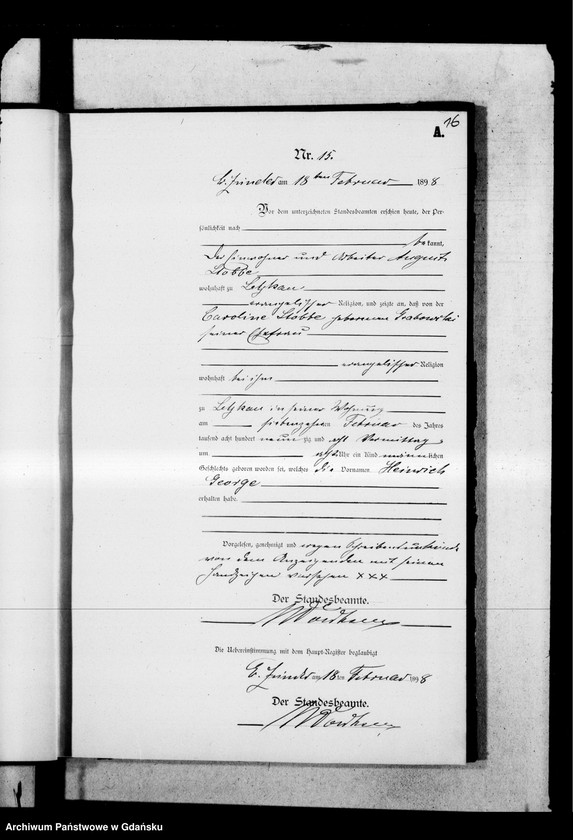 16
A.
Nr. 15.
E. Zünder am 18ten Februar 1898
Vor dem unterzeichneten Standesbeamten erschien heute, der Per-
sönlichkeit nach
bekannt,
der Einwohner und Arbeiter August
Stobbe
wohnhaft zu Letzkau
evangelischer Religion, und zeigte an, daß von der
Caroline Stobbe geborenen Grabowski
seiner Ehefrau
evangelischer Religion
wohnhaft bei ihm
zu Letzkau in seiner Wohnung
am siebenzehnten Februar des Jahres
tausend acht hundert neunzig und acht Vormittag
um Uhr ein Kind männlichen
Geschlechts geboren worden sei, welches die Vornamen Heinrich
George
erhalten habe.
Vorgelesen, genehmigt und wegen Schreibensunkunde
von dem Anzeigenden mit seinen
Handzeichen versehen xxx
Der Standesbeamte.
Die Uebereinstimmung mit dem Haupt-Register beglaubigt
E. Zünder am 18ten Februar 1898
Der Standesbeamte.
Archiwum Państwowe w Gdańsku